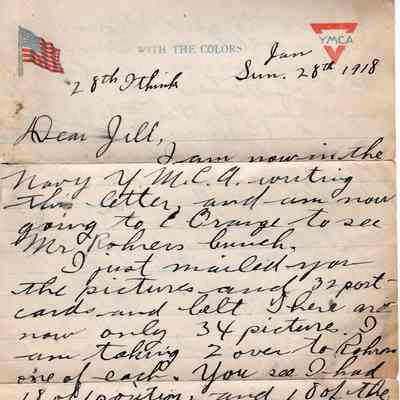 YMCA
WITH THE COLORS
Jan
28th I think Sun. 28th, 1918
Dear Jill,
I am now in the
Navy Y.M.C.A. writing
this letter, and am now
going to E Orange to see
Mr. Rohrers bunch.
I just mailed you
the pictures and 32 post-
cards and belt. There are
now only 34 picture. I
am taking 2 over to Rohrers
one of each. You see I had
18 of 1 position, and 18 of the